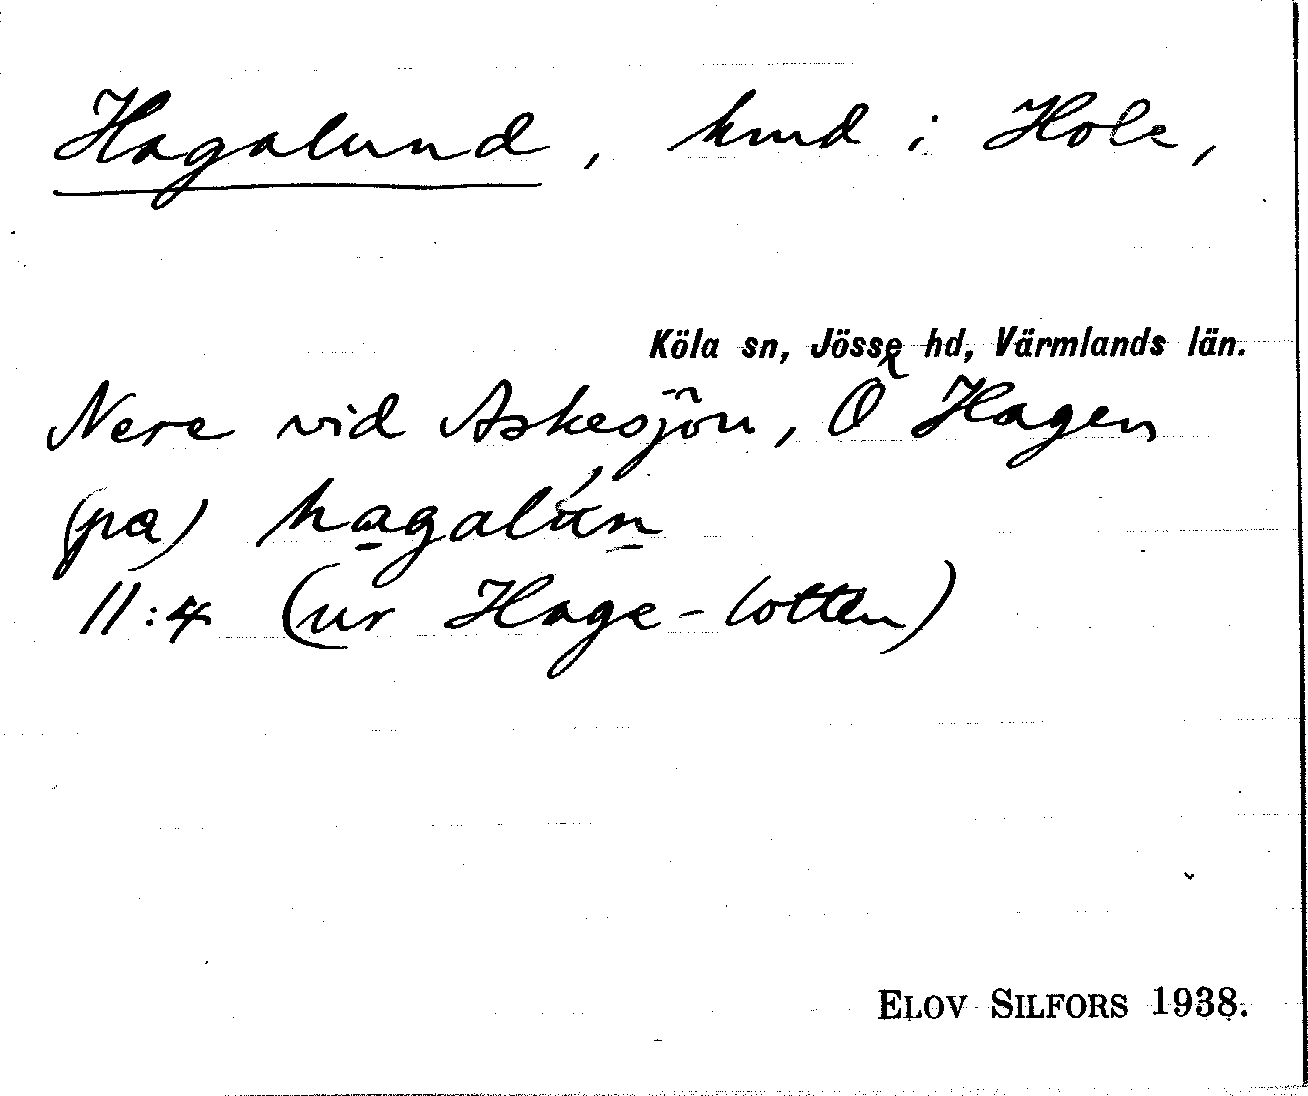 Hagalund, hmd i Hole,
Köla sn, Jösse hd, Värmlands län.
Nere vid Askesjön, Ö Hagen
(pa) hagalún
11:4 (ur Hage-lotten)
ELOV SILFORS 1938.